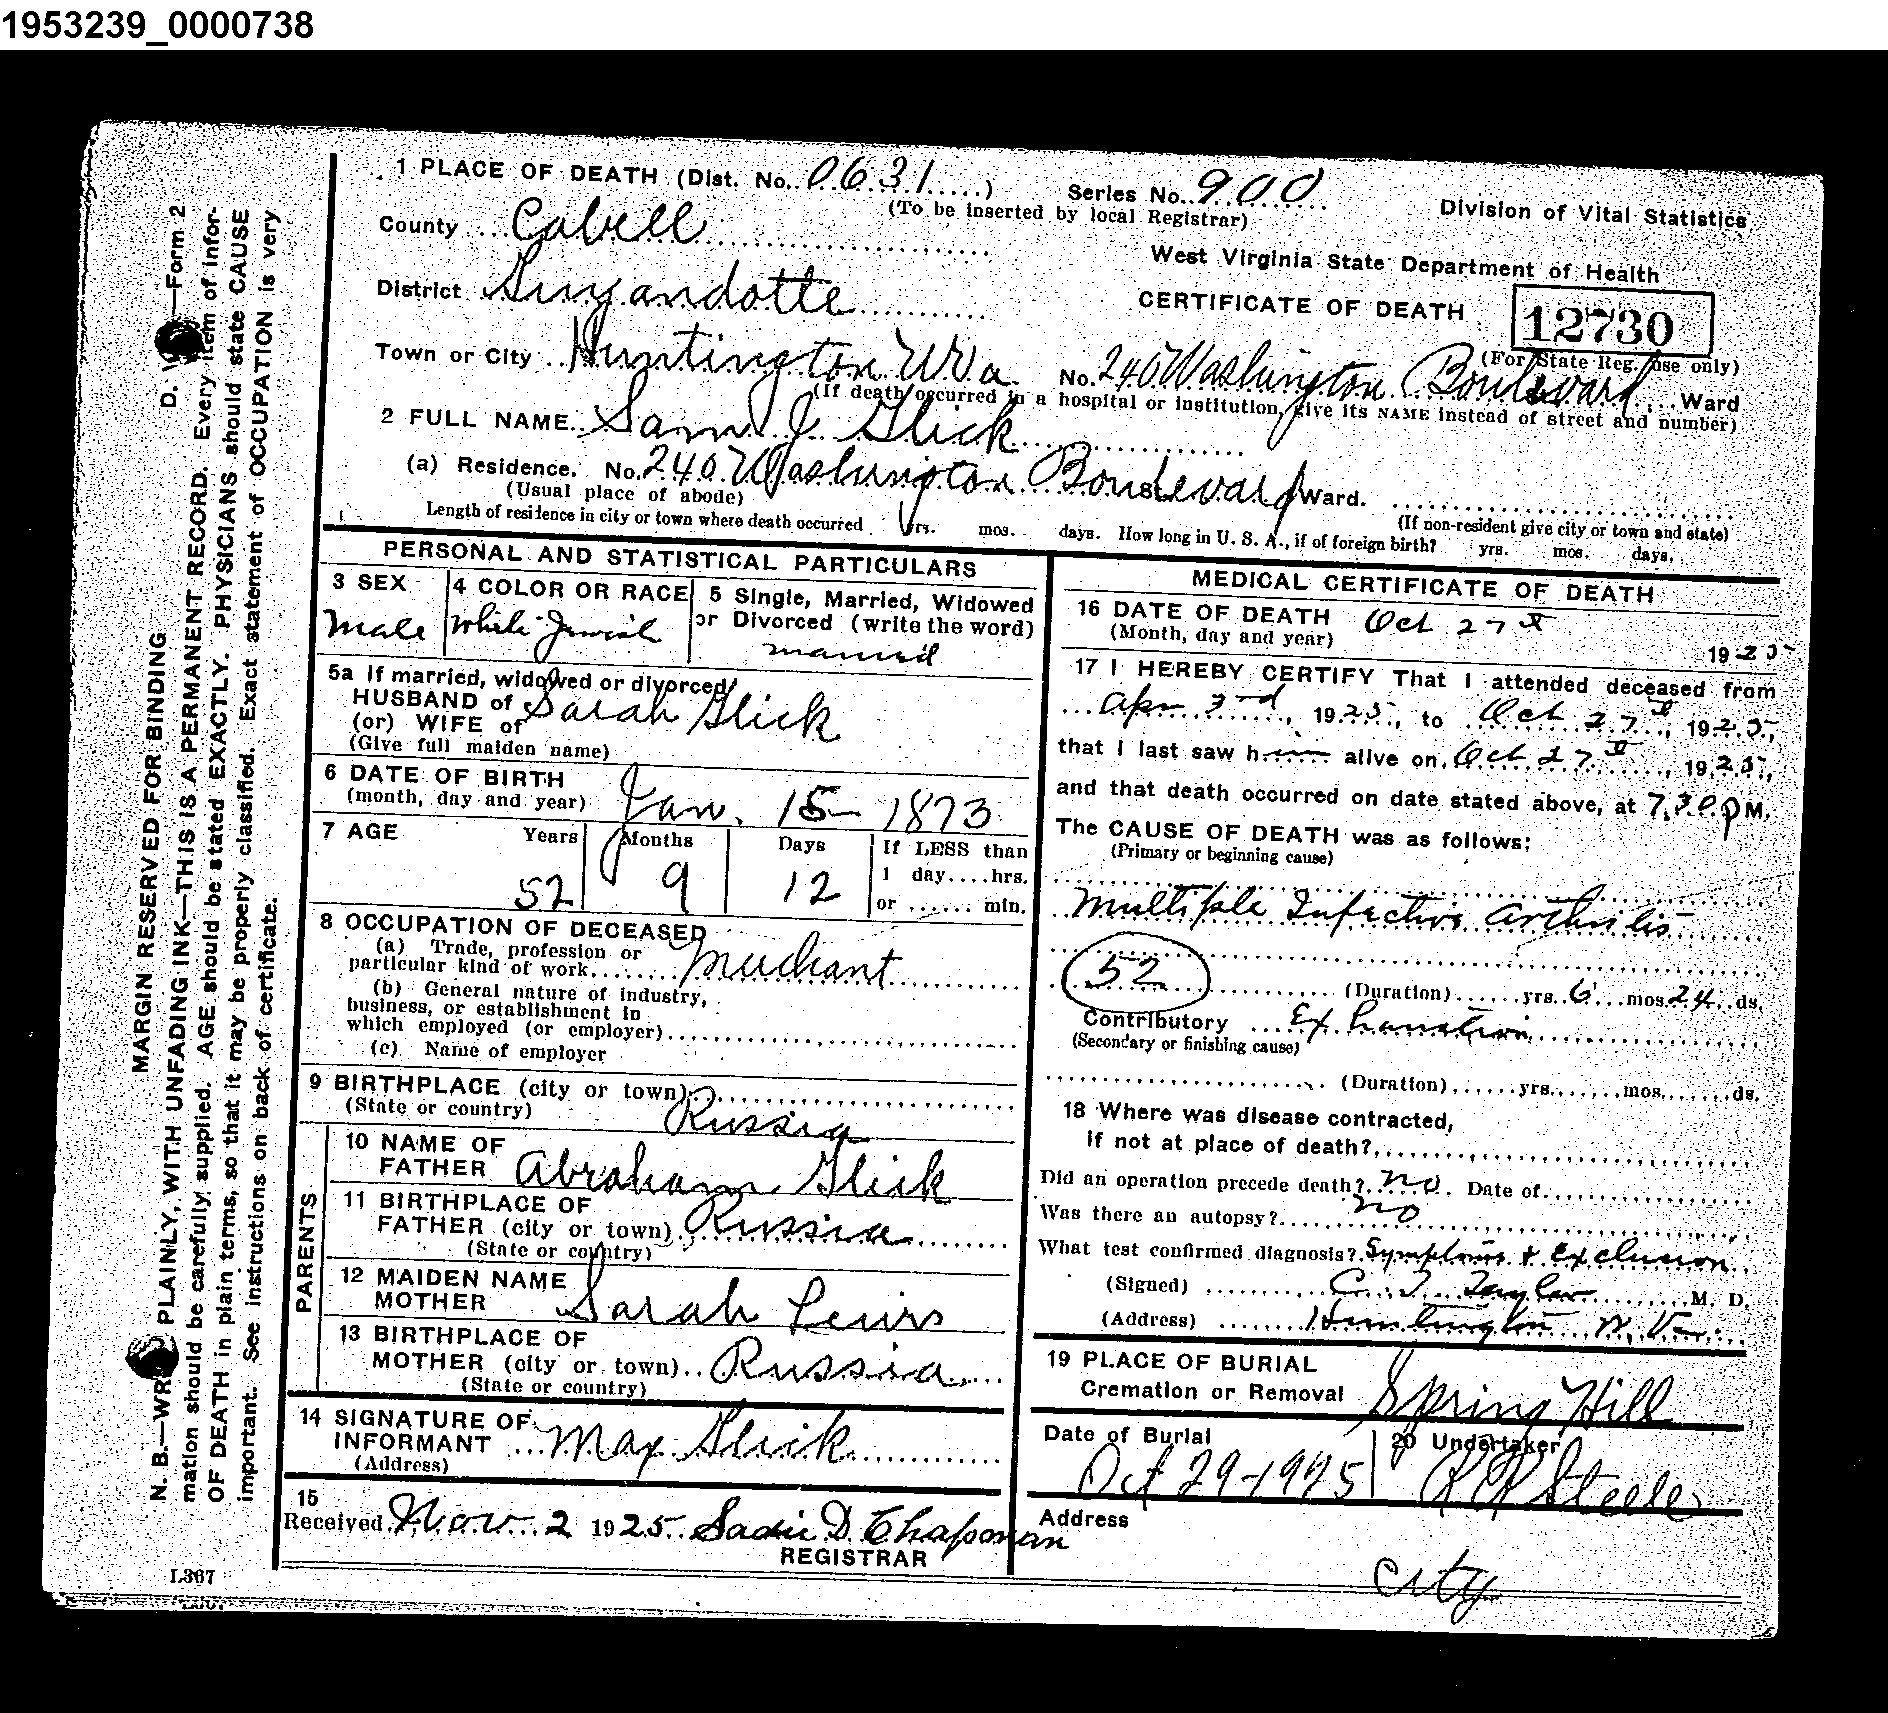 1953239_0000738
1 PLACE OF DEATH (Dist. No. 0631) Series No. 900
(To be inserted by local Registrar)
Division of Vital Statistics
County Cabell
West Virginia State Department of Health
District Guyandotte
CERTIFICATE OF DEATH 12730
(For State Reg. use only)
Town or City Huntington WVa No. 240 Washington Boulevard Ward
(If death occurred in a hospital or institution, give its NAME instead of street and number)
2 FULL NAME Sam J Glick
(a) Residence. No. 240 Washington Boulevard Ward.
(Usual place of abode) (If non-resident give city or town and state)
Length of residence in city or town where death occurred yrs. mos. days. How long in U. S. A., if of foreign birth? yrs. mos. days.
PERSONAL AND STATISTICAL PARTICULARS
3 SEX
Male
4 COLOR OR RACE
White-Jewish
5 Single, Married, Widowed
or Divorced (write the word)
married
5a If married, widowed or divorced
HUSBAND of
(or) WIFE of
Sarah Glick
(Give full maiden name)
6 DATE OF BIRTH
(month, day and year) Jan. 15- 1873
7 AGE Years Months Days If LESS than
1 day....hrs.
52 9 12 or ...... min.
8 OCCUPATION OF DECEASED
(a) Trade, profession or
particular kind of work Merchant
(b) General nature of industry,
business, or establishment in
which employed (or employer)
(c) Name of employer
9 BIRTHPLACE (city or town)
(State or country) Russia
PARENTS
10 NAME OF
FATHER Abraham Glick
11 BIRTHPLACE OF
FATHER (city or town) Russia
(State or country)
12 MAIDEN NAME
MOTHER Sarah Lewis
13 BIRTHPLACE OF
MOTHER (city or town) Russia
(State or country)
14 SIGNATURE OF
INFORMANT Max Glick
(Address)
15
Received Nov 2 1925 Sadie D. Chapman
REGISTRAR
MEDICAL CERTIFICATE OF DEATH
16 DATE OF DEATH Oct 27
(Month, day and year) 1925
17 I HEREBY CERTIFY That I attended deceased from
Apr 3rd, 1925, to Oct 27, 1925,
that I last saw him alive on Oct 27, 1925,
and that death occurred on date stated above, at 7,30 P M.
The CAUSE OF DEATH was as follows:
(Primary or beginning cause)
Multiple Infective Arthritis
52
(Duration) yrs. 6 mos. 24 ds.
Contributory Exhaustion
(Secondary or finishing cause)
(Duration) yrs. mos. ds.
18 Where was disease contracted,
if not at place of death?
Did an operation precede death? no. Date of
Was there an autopsy? no
What test confirmed diagnosis? Symptoms & Exclusion
(Signed) C. T. Taylor M. D.
(Address) Huntington W. Va.
19 PLACE OF BURIAL
Cremation or Removal Spring Hill
Date of Burial
Oct 29-1925
20 Undertaker
R R Steele
Address
City
MARGIN RESERVED FOR BINDING
D. —Form 2
N. B.—WRITE PLAINLY, WITH UNFADING INK—THIS IS A PERMANENT RECORD. Every item of infor-
mation should be carefully supplied. AGE should be stated EXACTLY. PHYSICIANS should state CAUSE
OF DEATH in plain terms, so that it may be properly classified. Exact statement of OCCUPATION is very
important. See instructions on back of certificate.
L367